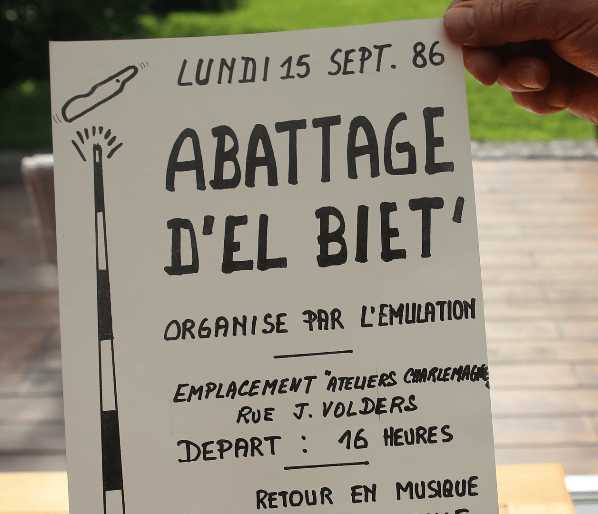 LUNDI 15 SEPT. 86
ABATTAGE
D'EL BIET'
ORGANISE PAR L'EMULATION
EMPLACEMENT "ATELIERS CHARLEMAGNE
RUE J. VOLDERS
DEPART : 16 HEURES
RETOUR EN MUSIQUE